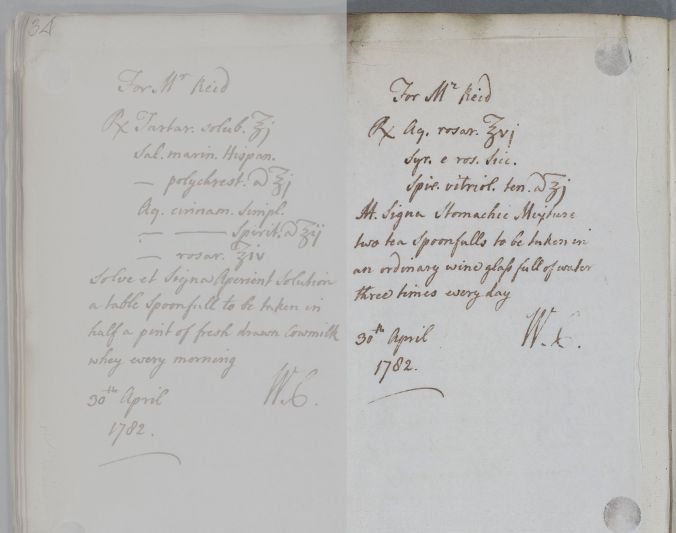 34
For Mr Reid
℞ Tartar. solub. ʒj
Sal. marin. Hispan.
— polychrest. a ʒj
Aq. cinnam. simpl.
— — Spirit. a ʒij
— rosar. ʒiv
Solve et Signa Aperient Solution
a table spoonfull to be taken in
half a pint of fresh drawn Cowmilk
whey every morning
30th April
1782.
W. C.
For Mr Reid
℞ Aq. rosar. ʒvj
Syr. e ros. sicc.
Spir. vitriol. ten. a ʒj
M. Signa Stomachic Mixture
two tea spoonfulls to be taken in
an ordinary wine glass full of water
three times every day
30th April
1782.
W. C.